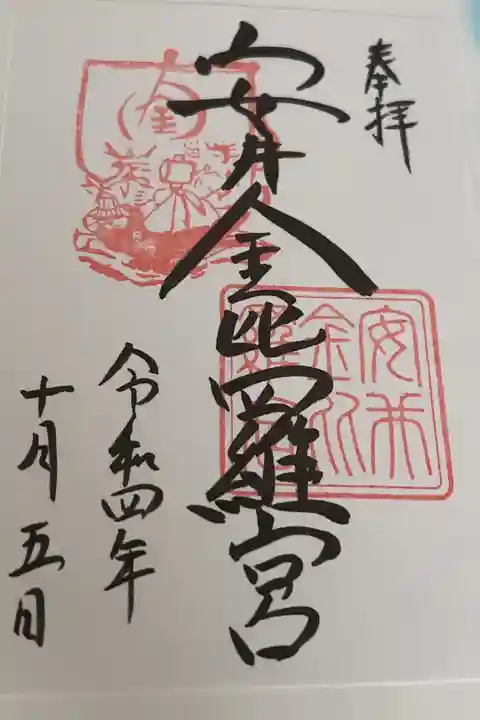 奉拝
安井金毘羅宮
安井金比羅宮
金
令和四年
十月五日